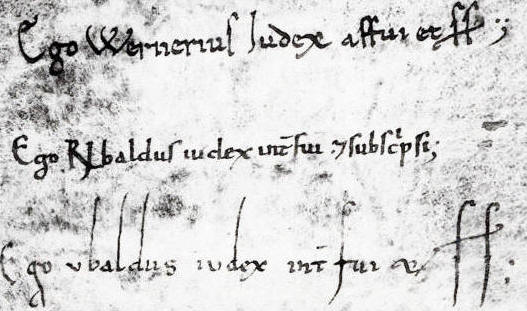 Ego Wernerius Iudex affui et ss ;
Ego Rubaldus iudex int̄fui ⁊ subsc̄psi;
Ego ubaldus iudex int̄ fui & ss;